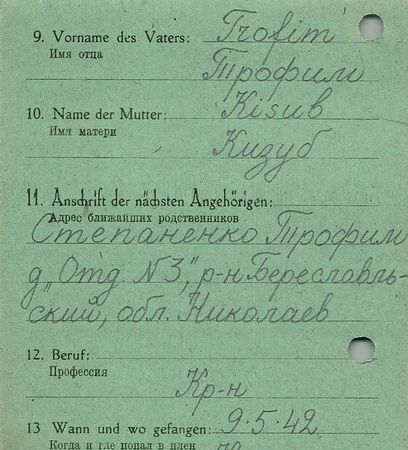 9. Vorname des Vaters: Trofim
Имя отца
Трофим
10. Name der Mutter: Kisub
Имя матери
Кизуб
11. Anschrift der nächsten Angehörigen:
Адрес ближайших родственников
Степаненко Трофим
д. „Отд. N3,“ р-н Береславль-
ский, обл. Николаев
12. Beruf:
Профессия
Кр-н
13 Wann und wo gefangen: 9.5.42
Когда и где попал в плен